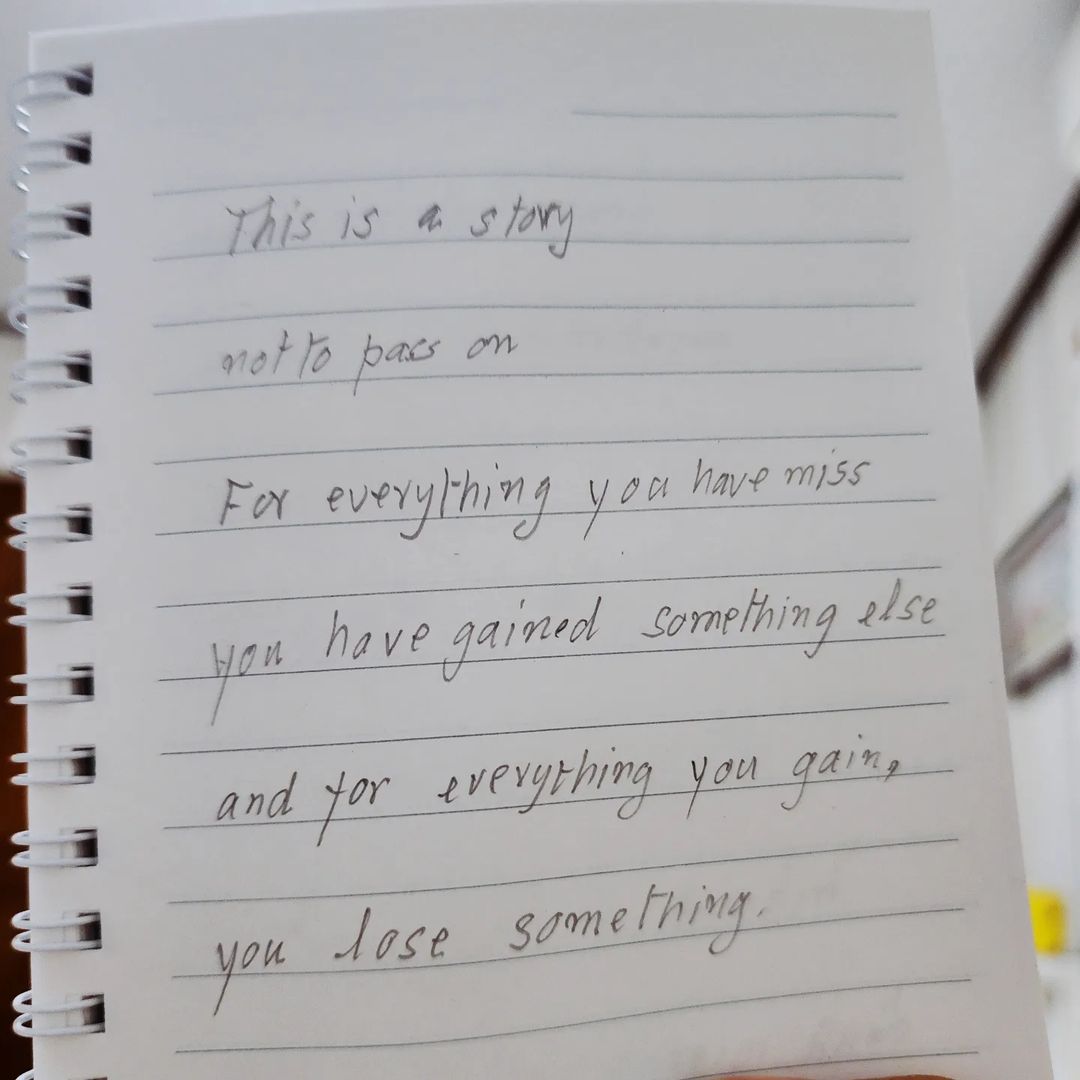 This is a story
not to pass on
For everything you have miss
you have gained something else
and for everything you gain,
you lose something.